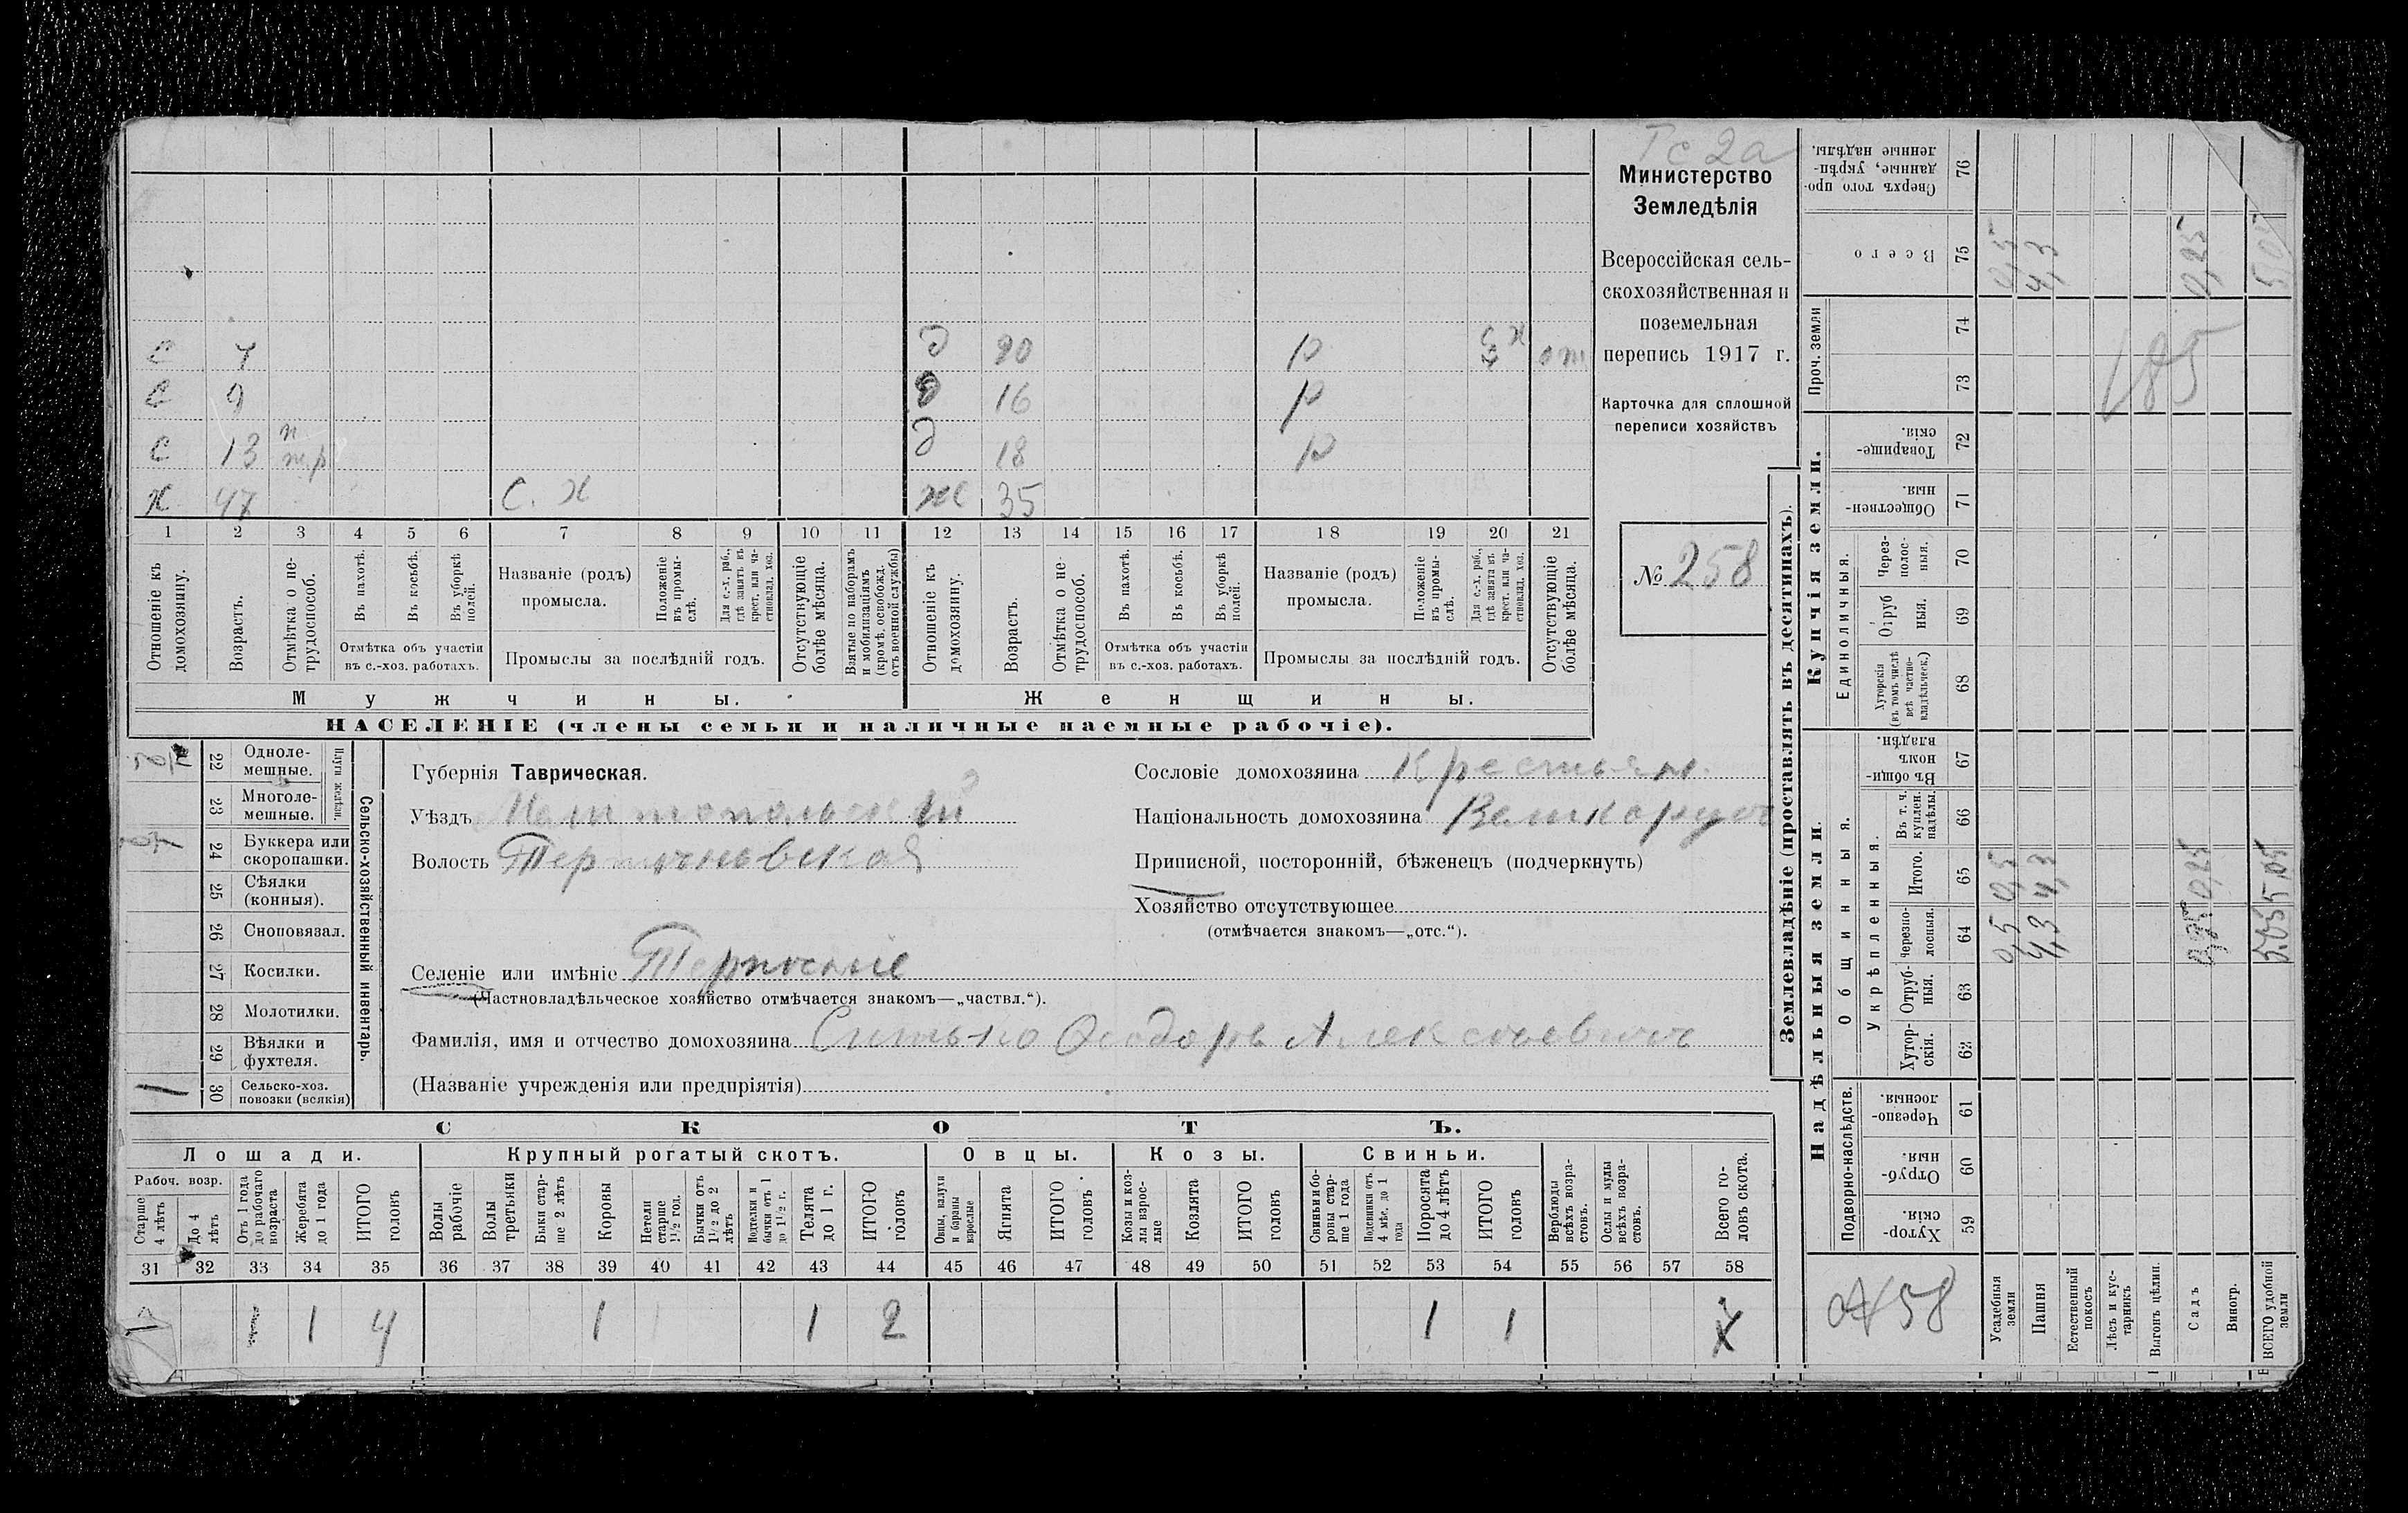 Тс 2а
Министерство
Земледѣлія
Всероссійская сель-
скохозяйственная и
поземельная
перепись 1917 г.
Карточка для сплошной
переписи хозяйствъ
№ 258
С 7 д 20 р с х от
С 9 д 16 р
С 13 п тр д 18 р
Х 47 С. Х жс 35
1 2 3 4 5 6 7 8 9 10 11 12 13 14 15 16 17 18 19 20 21
Отношеніе къ домохозяину.
Возрастъ.
Отмѣтка о не-трудоспособ.
Въ пахотѣ.
Въ косьбѣ.
Въ уборкѣ полей.
Отмѣтка объ участіи
въ с.-хоз. работахъ.
Названіе (родъ)
промысла.
Положеніе въ промы-слѣ.
Для с.-х. раб., гдѣ занятъ въ крест. или ча-стновлад. хоз.
Промыслы за послѣдній годъ.
Отсутствующіе болѣе мѣсяца.
Взятые по наборамъ и мобилизаціямъ (кромѣ освобожд. отъ военной службы)
Отношеніе къ домохозяину.
Возрастъ.
Отмѣтка о не-трудоспособ.
Въ пахотѣ.
Въ косьбѣ.
Въ уборкѣ полей.
Отмѣтка объ участіи
въ с.-хоз. работахъ.
Названіе (родъ)
промысла.
Положеніе въ промы-слѣ.
Для с.-х. раб., гдѣ занята въ крест. или ча-стновлад. хоз.
Промыслы за послѣдній годъ.
Отсутствующіе болѣе мѣсяца.
Мужчины.
Женщины.
НАСЕЛЕНІЕ (члены семьи и наличные наемные рабочіе).
Сельско-хозяйственный инвентарь.
Плуги желѣзн.
22 Одноле-мешные.
23 Многоле-мешные.
24 Буккера или скоропашки.
25 Сѣялки (конныя).
26 Сноповязал.
27 Косилки.
28 Молотилки.
29 Вѣялки и фухтеля.
1 30 Сельско-хоз. повозки (всякія)
Губернія Таврическая.
Уѣздъ Мелитопольскій
Волость Терпѣньевская
Селеніе или имѣніе Терпѣніе
(Частновладѣльческое хозяйство отмѣчается знакомъ—„частвл.“).
Фамилія, имя и отчество домохозяина Ситько Ѳеодоръ Алексѣевичъ
(Названіе учрежденія или предпріятія)
Сословіе домохозяина Крестьян.
Національность домохозяина Великорусъ
Приписной, посторонній, бѣженецъ (подчеркнуть)
Хозяйство отсутствующее
(отмѣчается знакомъ—„отс.“).
СКОТЪ.
Лошади.
Крупный рогатый скотъ.
Овцы.
Козы.
Свиньи.
Рабоч. возр.
Старше 4 лѣтъ
До 4 лѣтъ
Отъ 1 года до рабочаго возраста
Жеребята до 1 года
ИТОГО головъ
Волы рабочіе
Волы третьяки
Быки стар-ше 2 лѣтъ
Коровы
Нетели старше 1½ год.
Бычки отъ 1½ до 2 лѣтъ
Подтелки и бычки отъ 1 до 1½ г.
Телята до 1 г.
ИТОГО головъ
Овцы, валухи и бараны взрослые
Ягнята
ИТОГО головъ
Козы и коз-лы взрос-лые
Козлята
ИТОГО головъ
Свиньи и бо-ровы стар-ше 1 года
Подсвинки отъ 4 мѣс. до 1 года
Поросята до 4 лѣтъ
ИТОГО головъ
Верблюды всѣхъ возра-стовъ.
Ослы и мулы всѣхъ возра-стовъ.
Всего го-ловъ скота.
31 32 33 34 35 36 37 38 39 40 41 42 43 44 45 46 47 48 49 50 51 52 53 54 55 56 57 58
1 4 1 1 2 1 1
Землевладѣніе (проставлять въ десятинахъ).
Надѣльныя земли.
Купчія земли.
Проч. земли
Подворно-наслѣдств.
Общинныя.
Укрѣпленныя.
Единоличныя.
Хутор-скія. 59
Отруб-ныя. 60
Черезпо-лосныя. 61
Хутор-скія. 62
Отруб-ныя. 63
Черезпо-лосныя. 64
Итого. 65
Въ т. ч. куплен. надѣлы. 66
Въ общин-номъ владѣн. 67
Хуторскія (въ томъ числѣ всѣ частно-владѣльческ.) 68
Отруб ныя. 69
Через-полос-ныя. 70
Обществен-ныя. 71
Товарище-скія. 72
73
74
Всего 75
Сверхъ того про-данные, укрѣп-ленные надѣлы. 76
Усадебныя земли 0,5 0,5 0,5
Пашня 4,3 4,3 4,3
Естественный покосъ
Лѣсъ и кус-тарникъ
Выгонъ цѣлин.
Садъ 0,25 0,25 0,25
Виногр.
ВСЕГО удобной земли 5,05 5,05 5,05
185
№ 58